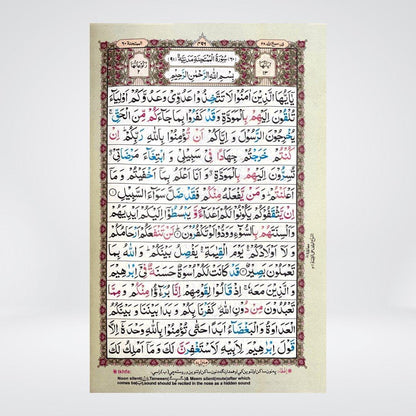 قد سمع الله ٢٨
الممتحنة ٦٠
سُوْرَةُ الْمُمْتَحِنَةِ مَدَنِيَّةٌ
بِسْمِ اللّٰهِ الرَّحْمٰنِ الرَّحِيْمِ
يٰۤاَيُّهَا الَّذِيْنَ اٰمَنُوْا لَا تَتَّخِذُوْا عَدُوِّيْ وَعَدُوَّكُمْ اَوْلِيَآءَ
تُلْقُوْنَ اِلَيْهِمْ بِالْمَوَدَّةِ وَقَدْ كَفَرُوْا بِمَا جَآءَكُمْ مِّنَ الْحَقِّ ۚ
يُخْرِجُوْنَ الرَّسُوْلَ وَاِيَّاكُمْ اَنْ تُؤْمِنُوْا بِاللّٰهِ رَبِّكُمْ ؕ اِنْ
كُنْتُمْ خَرَجْتُمْ جِهَادًا فِيْ سَبِيْلِيْ وَابْتِغَآءَ مَرْضَاتِيْ
تُسِرُّوْنَ اِلَيْهِمْ بِالْمَوَدَّةِ ۖ وَاَنَا اَعْلَمُ بِمَاۤ اَخْفَيْتُمْ وَمَاۤ
اَعْلَنْتُمْ ؕ وَمَنْ يَّفْعَلْهُ مِنْكُمْ فَقَدْ ضَلَّ سَوَآءَ السَّبِيْلِ ۝
اِنْ يَّثْقَفُوْكُمْ يَكُوْنُوْا لَكُمْ اَعْدَآءً وَّيَبْسُطُوْۤا اِلَيْكُمْ اَيْدِيَهُمْ
وَاَلْسِنَتَهُمْ بِالسُّوْٓءِ وَوَدُّوْا لَوْ تَكْفُرُوْنَ ۝ لَنْ تَنْفَعَكُمْ اَرْحَامُكُمْ
وَلَاۤ اَوْلَادُكُمْ ۚ يَوْمَ الْقِيٰمَةِ ۚ يَفْصِلُ بَيْنَكُمْ ؕ وَاللّٰهُ بِمَا
تَعْمَلُوْنَ بَصِيْرٌ ۝ قَدْ كَانَتْ لَكُمْ اُسْوَةٌ حَسَنَةٌ فِيْۤ اِبْرٰهِيْمَ
وَالَّذِيْنَ مَعَهٗ ۚ اِذْ قَالُوْا لِقَوْمِهِمْ اِنَّا بُرَءٰٓؤُا مِنْكُمْ وَمِمَّا
تَعْبُدُوْنَ مِنْ دُوْنِ اللّٰهِ ۫ كَفَرْنَا بِكُمْ وَبَدَا بَيْنَنَا وَبَيْنَكُمُ
الْعَدَاوَةُ وَالْبَغْضَآءُ اَبَدًا حَتّٰى تُؤْمِنُوْا بِاللّٰهِ وَحْدَهٗۤ اِلَّا
قَوْلَ اِبْرٰهِيْمَ لِاَبِيْهِ لَاَسْتَغْفِرَنَّ لَكَ وَمَاۤ اَمْلِكُ لَكَ
Ikhfa:
Noon silent
after which
sound should be recited in the nose as a hidden sound